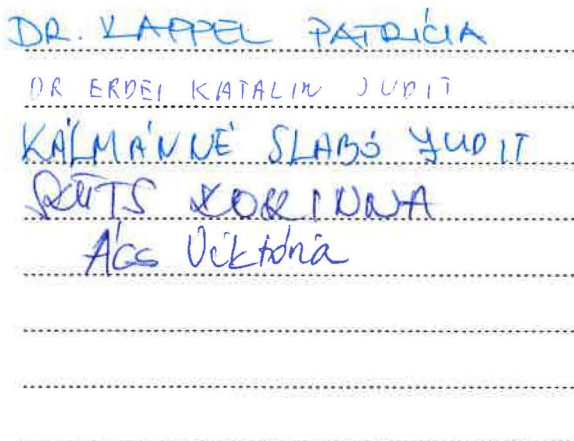 DR. KAPPEL PATRÍCIA
DR ERDEI KATALIN JUDIT
KÁLMÁNNÉ SLABÓ JUDIT
KORINNA
Ács Viktória